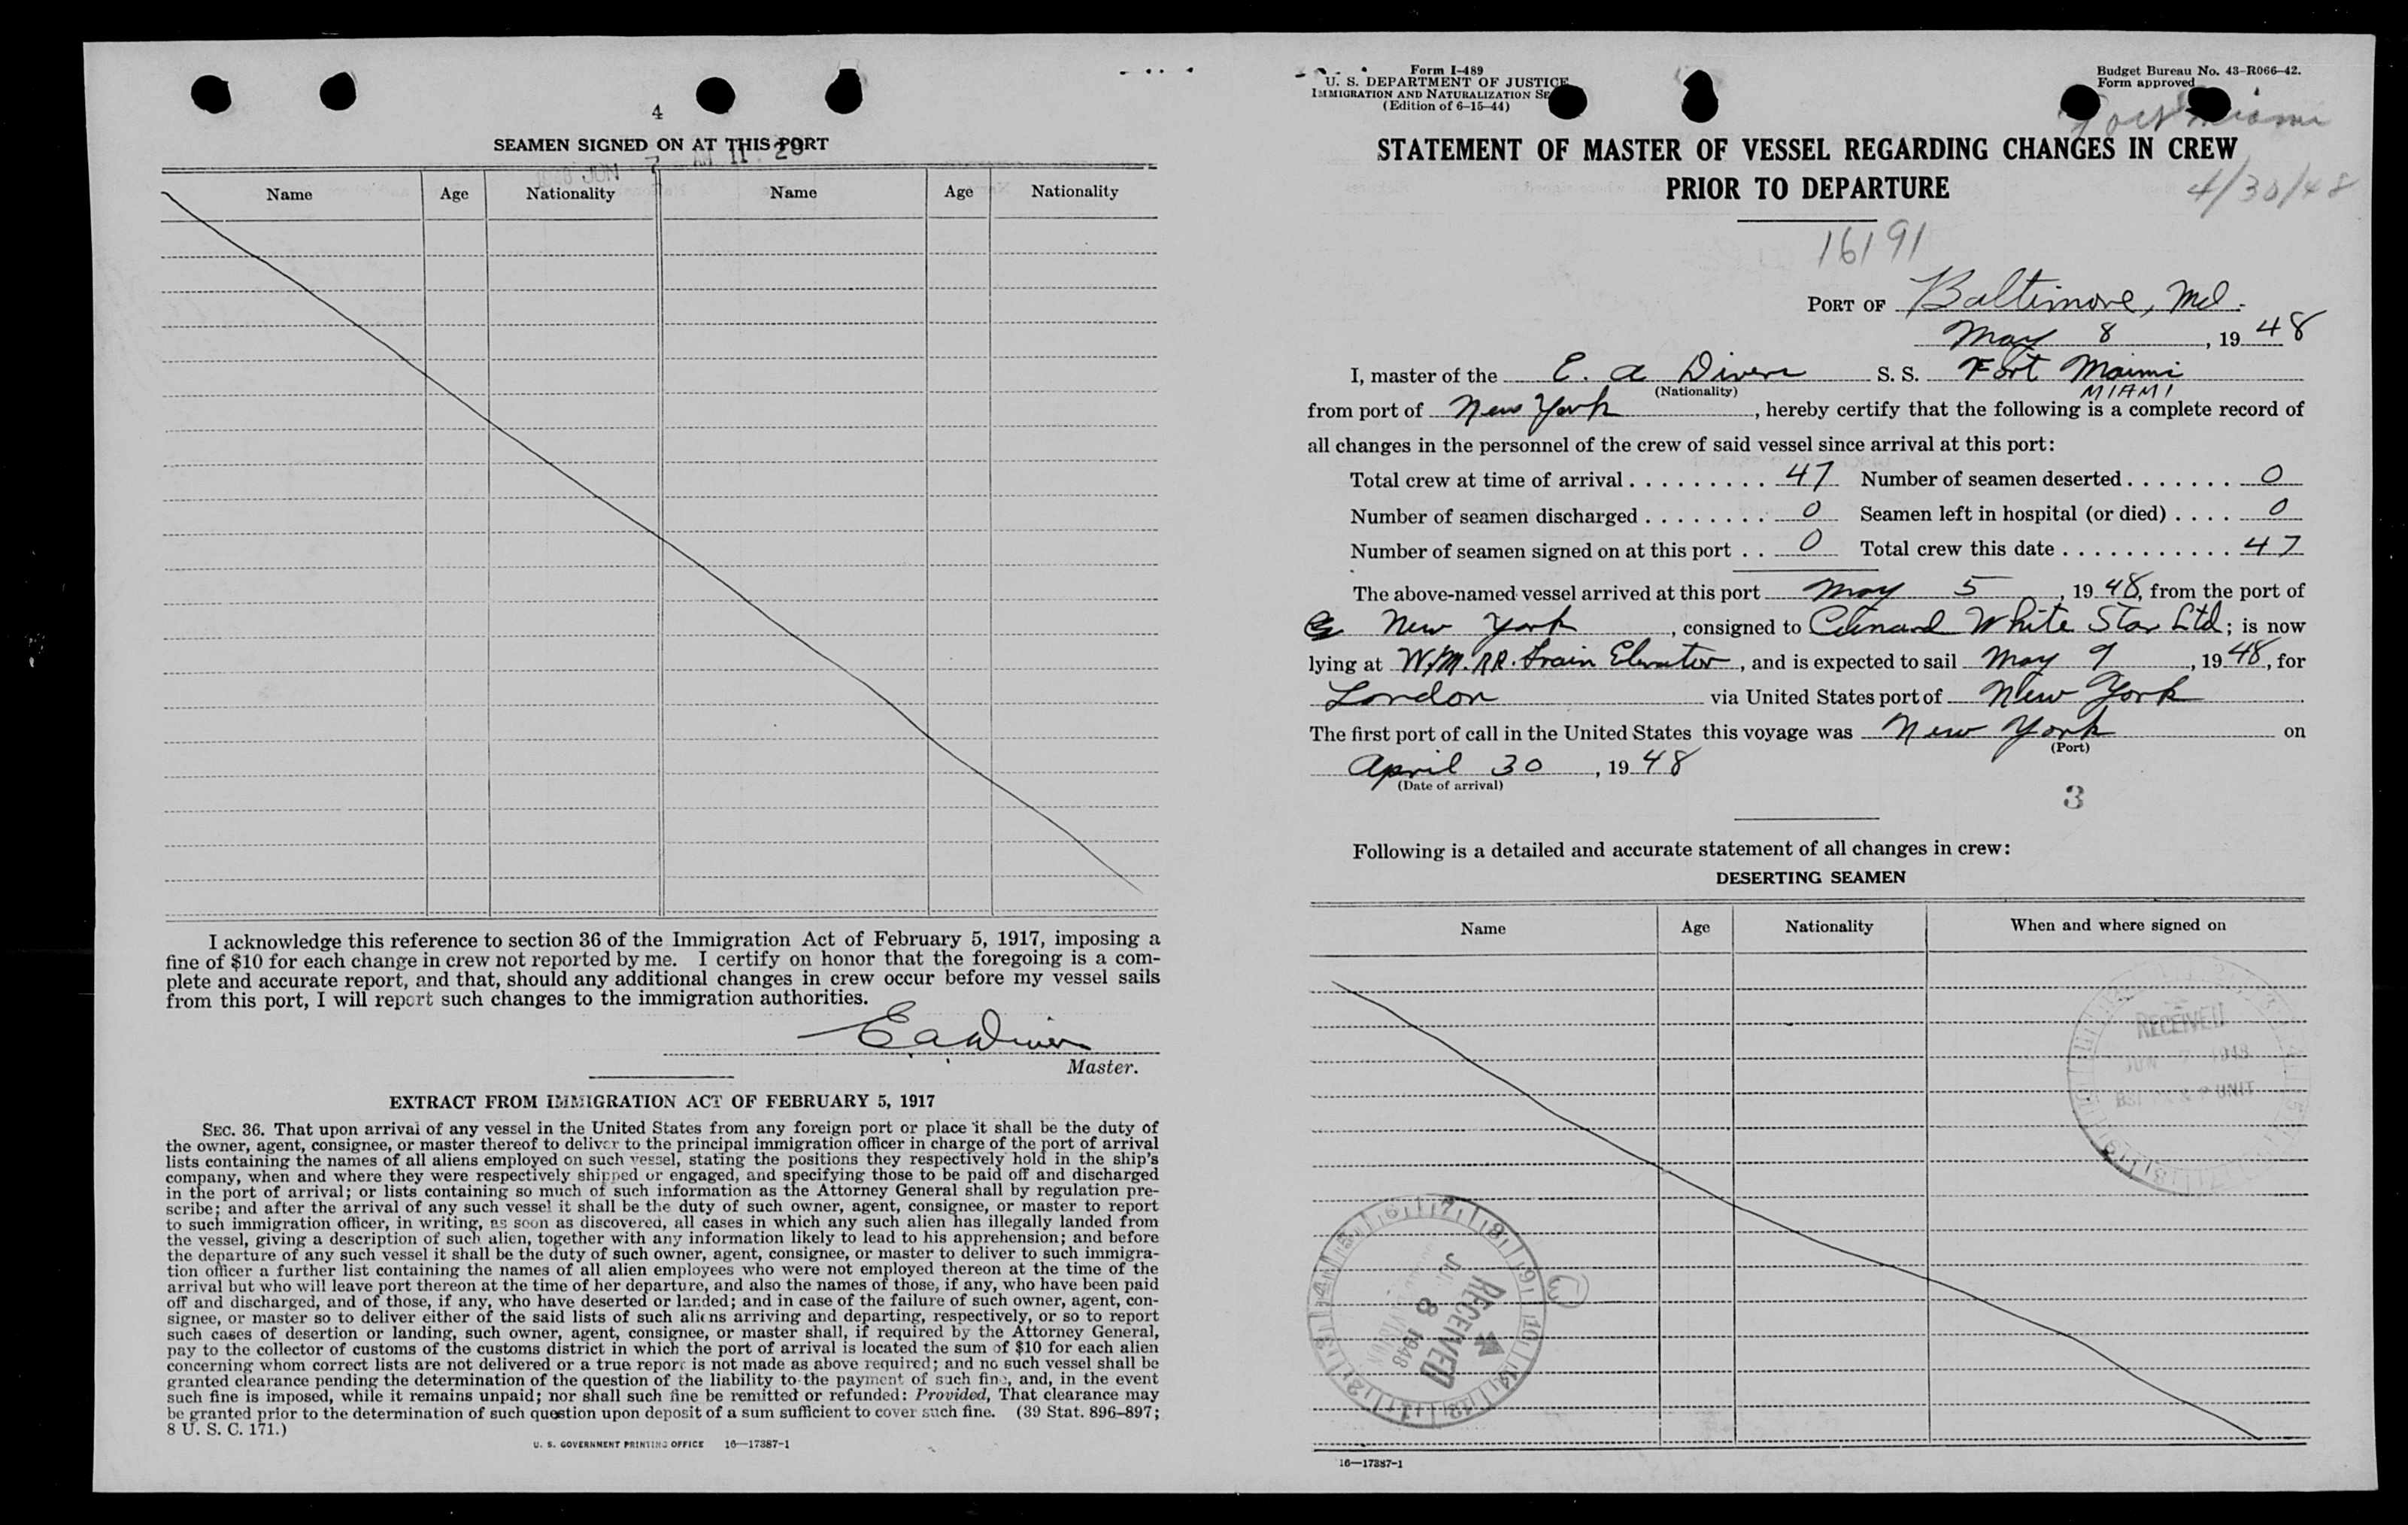 4
SEAMEN SIGNED ON AT THIS PORT
JUN 7 AM 11 29
Name Age Nationality Name Age Nationality
I acknowledge this reference to section 36 of the Immigration Act of February 5, 1917, imposing a
fine of $10 for each change in crew not reported by me. I certify on honor that the foregoing is a com-
plete and accurate report, and that, should any additional changes in crew occur before my vessel sails
from this port, I will report such changes to the immigration authorities.
E a Divers
Master.
EXTRACT FROM IMMIGRATION ACT OF FEBRUARY 5, 1917
SEC. 36. That upon arrival of any vessel in the United States from any foreign port or place it shall be the duty of
the owner, agent, consignee, or master thereof to deliver to the principal immigration officer in charge of the port of arrival
lists containing the names of all aliens employed on such vessel, stating the positions they respectively hold in the ship's
company, when and where they were respectively shipped or engaged, and specifying those to be paid off and discharged
in the port of arrival; or lists containing so much of such information as the Attorney General shall by regulation pre-
scribe; and after the arrival of any such vessel it shall be the duty of such owner, agent, consignee, or master to report
to such immigration officer, in writing, as soon as discovered, all cases in which any such alien has illegally landed from
the vessel, giving a description of such alien, together with any information likely to lead to his apprehension; and before
the departure of any such vessel it shall be the duty of such owner, agent, consignee, or master to deliver to such immigra-
tion officer a further list containing the names of all alien employees who were not employed thereon at the time of the
arrival but who will leave port thereon at the time of her departure, and also the names of those, if any, who have been paid
off and discharged, and of those, if any, who have deserted or landed; and in case of the failure of such owner, agent, con-
signee, or master so to deliver either of the said lists of such aliens arriving and departing, respectively, or so to report
such cases of desertion or landing, such owner, agent, consignee, or master shall, if required by the Attorney General,
pay to the collector of customs of the customs district in which the port of arrival is located the sum of $10 for each alien
concerning whom correct lists are not delivered or a true report is not made as above required; and no such vessel shall be
granted clearance pending the determination of the question of the liability to the payment of such fine, and, in the event
such fine is imposed, while it remains unpaid; nor shall such fine be remitted or refunded: Provided, That clearance may
be granted prior to the determination of such question upon deposit of a sum sufficient to cover such fine. (39 Stat. 896–897;
8 U. S. C. 171.)
U. S. GOVERNMENT PRINTING OFFICE 16—17387-1
Form I-489
U. S. DEPARTMENT OF JUSTICE
IMMIGRATION AND NATURALIZATION SE
(Edition of 6–15–44)
Budget Bureau No. 43–R066–42.
Form approved
Fort Miami
4/30/48
STATEMENT OF MASTER OF VESSEL REGARDING CHANGES IN CREW
PRIOR TO DEPARTURE
16191
PORT OF Baltimore, Md.
May 8, 1948
I, master of the E. A Divers S. S. Fort Maimi
(Nationality) MIAMI
from port of New York, hereby certify that the following is a complete record of
all changes in the personnel of the crew of said vessel since arrival at this port:
Total crew at time of arrival . . . . . . . . . 47 Number of seamen deserted . . . . . . . 0
Number of seamen discharged . . . . . . . . 0 Seamen left in hospital (or died) . . . . 0
Number of seamen signed on at this port . . 0 Total crew this date . . . . . . . . . . . 47
The above-named vessel arrived at this port May 5, 1948, from the port of
New York, consigned to Cunard White Star Ltd; is now
lying at W.M. RR. Grain Elevator, and is expected to sail May 9, 1948, for
London via United States port of New York
The first port of call in the United States this voyage was New York on
(Port)
April 30, 1948
(Date of arrival)
3
Following is a detailed and accurate statement of all changes in crew:
DESERTING SEAMEN
Name Age Nationality When and where signed on
RECEIVED
JUN 7 1948
UNIT
RECEIVED
8 1948
16—17387-1